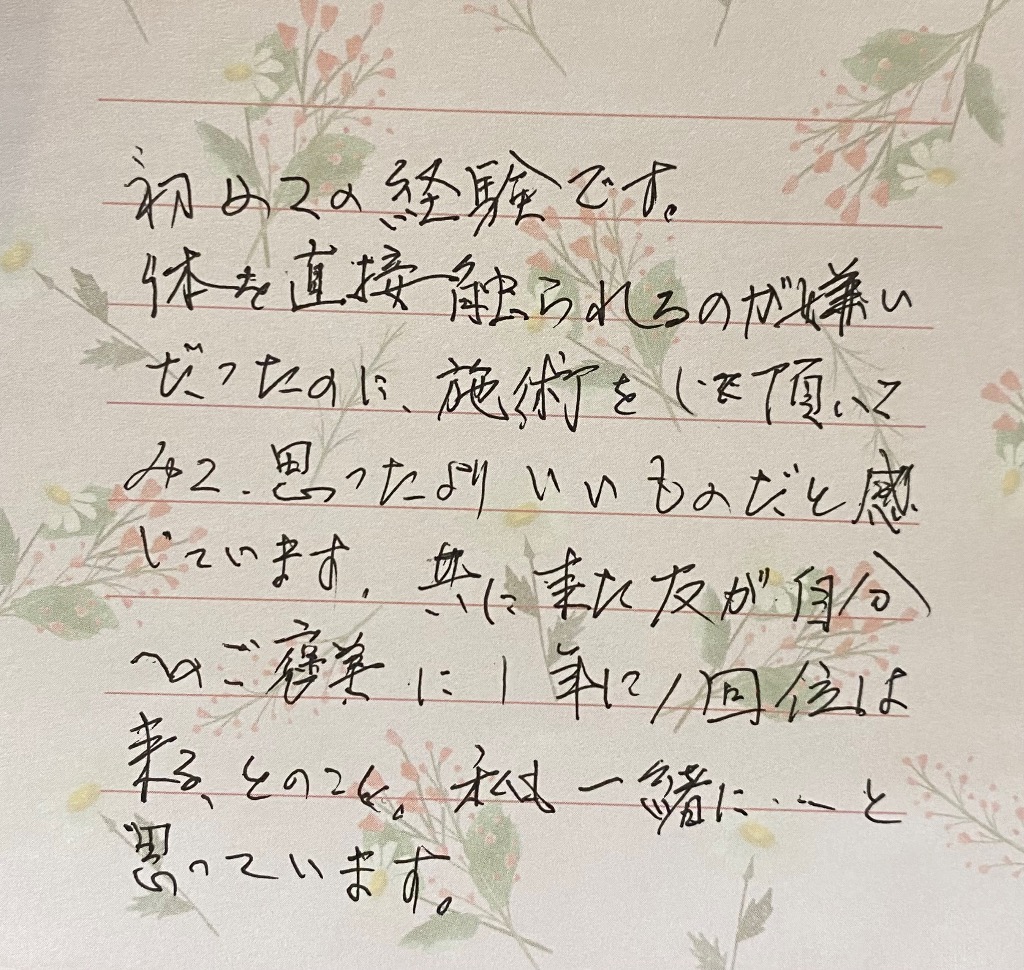 初めての経験です。
体を直接触られるのが嫌い
だったのに、施術をして頂いて
みて、思ったよりいいものだと感
じています。共に来た友が自分
へのご褒美に1年に1回位は
来る、とのこと。私も一緒に…と
思っています。